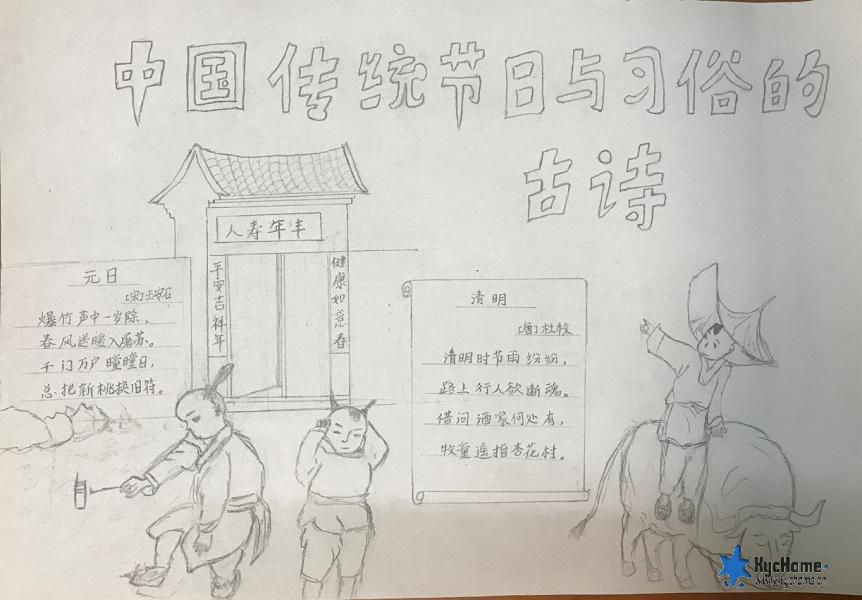 中国传统节日与习俗的
古诗
人寿年丰
平安吉祥年
健康如意春
元日
[宋]王安石
爆竹声中一岁除，
春风送暖入屠苏。
千门万户曈曈日，
总把新桃换旧符。
清明
[唐]杜牧
清明时节雨纷纷，
路上行人欲断魂。
借问酒家何处有，
牧童遥指杏花村。
KycHome
www.kychome.cn